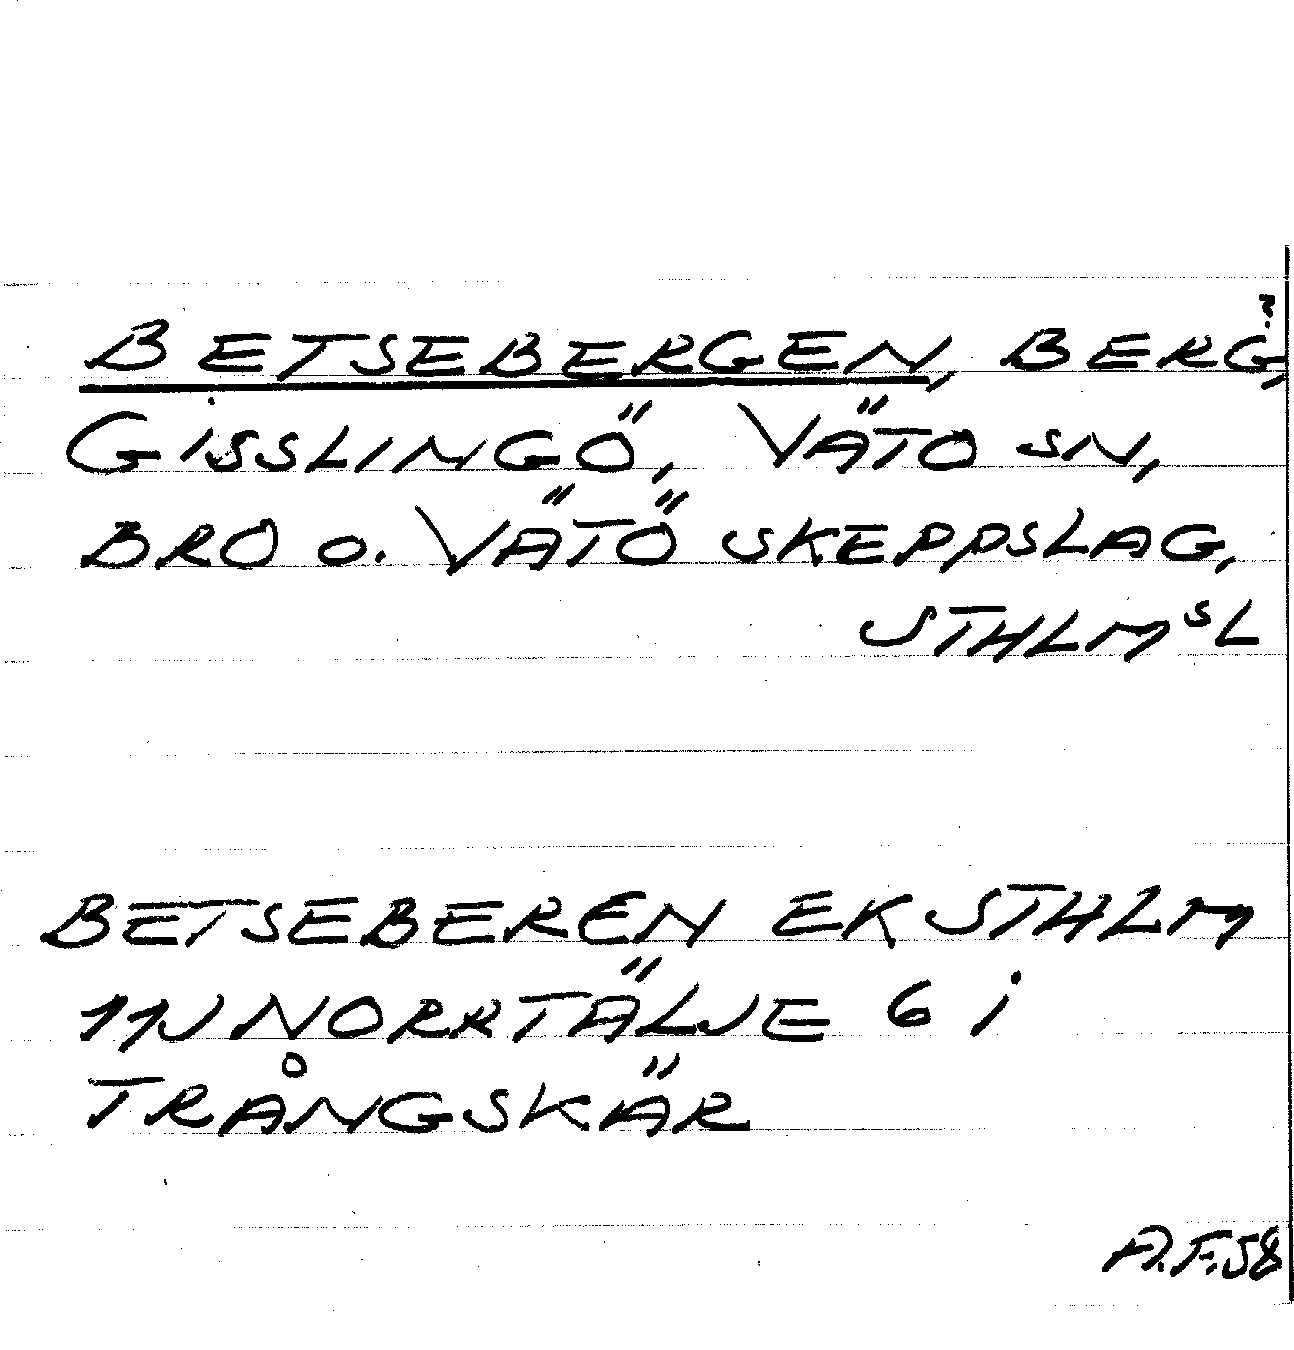 BETSEBERGEN, BERG?,
GISSLINGÖ, VÄTO SN,
BRO o. VÄTÖ SKEPPSLAG,
STHLMSL
BETSEBEREN EK STHLM
11J NORRTÄLJE 6 i
TRÅNGSKÄR
A.F.58